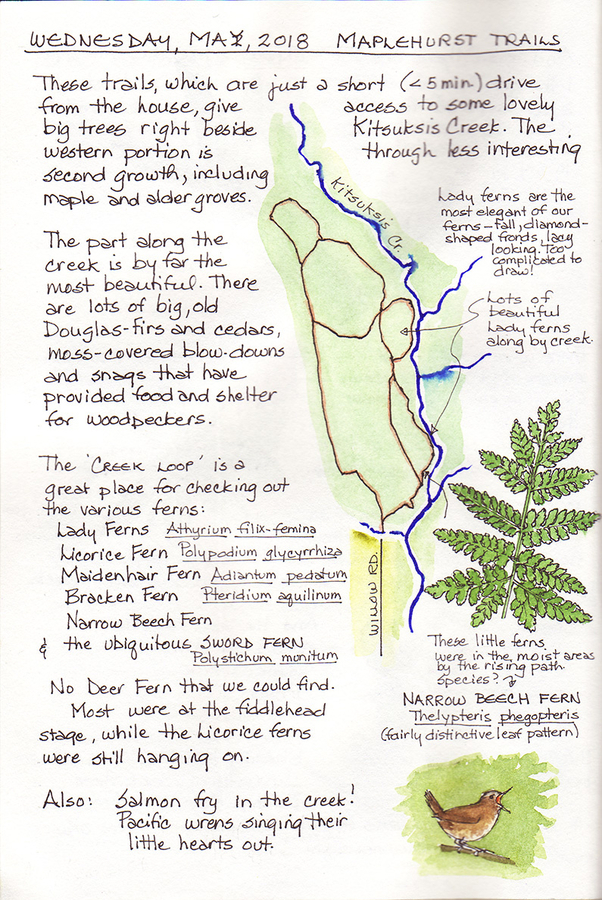 WEDNESDAY, MAY 2, 2018 MAPLEHURST TRAILS
These trails, which are just a short (< 5 min.) drive
from the house, give access to some lovely
big trees right beside Kitsuksis Creek. The
western portion is through less interesting
second growth, including
maple and alder groves.
The part along the
creek is by far the
most beautiful. There
are lots of big, old
Douglas-firs and cedars,
moss-covered blow-downs
and snags that have
provided food and shelter
for woodpeckers.
The 'CREEK LOOP' is a
great place for checking out
the various ferns:
Lady Ferns Athyrium filix-femina
Licorice Fern Polypodium glycyrrhiza
Maidenhair Fern Adiantum pedatum
Bracken Fern Pteridium aquilinum
Narrow Beech Fern
& the ubiquitous SWORD FERN
Polystichum munitum
No Deer Fern that we could find.
Most were at the fiddlehead
stage, while the Licorice ferns
were still hanging on.
Also: Salmon fry in the creek!
Pacific wrens singing their
little hearts out.
Kitsuksis Cr.
Lady ferns are the
most elegant of our
ferns - tall, diamond-
shaped fronds, lacy
looking. Too
complicated to
draw!
Lots of
beautiful
Lady ferns
along by creek.
WILLOW RD.
These little ferns
were in the moist areas
by the rising path
species?
NARROW BEECH FERN
Thelypteris phegopteris
(fairly distinctive leaf pattern)